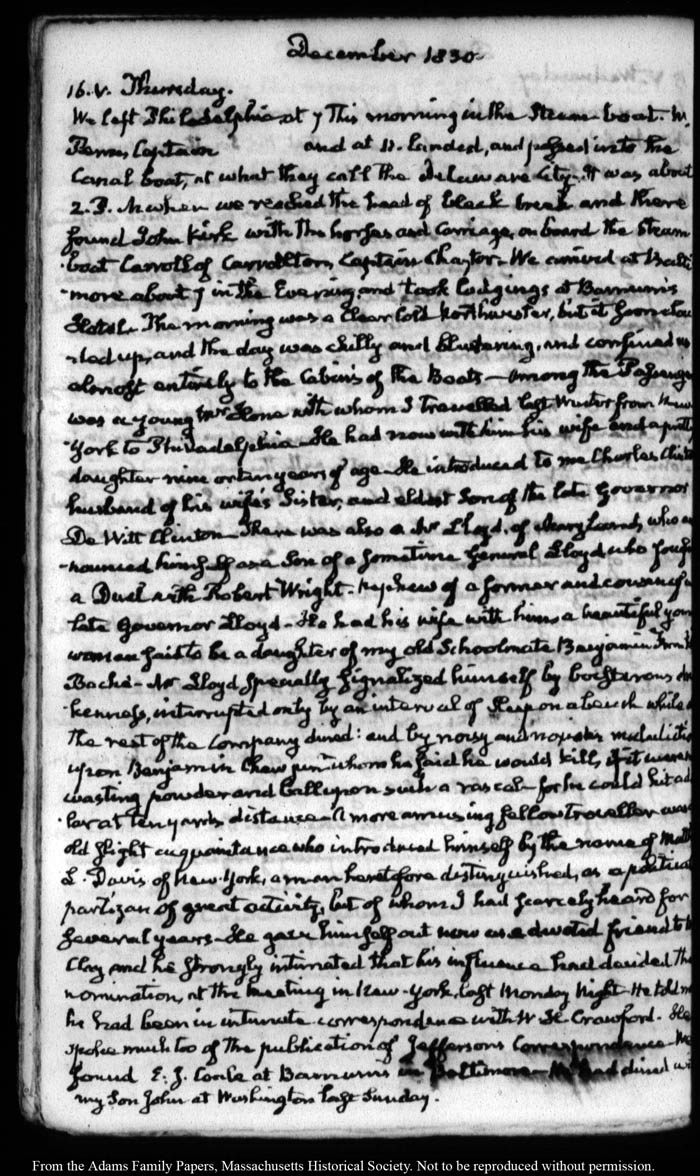 December 1830
16. V. Thursday.
We left Philadelphia at 7 This morning in the Steam-boat. W.
Penn, Captain and at 11. landed, and passed into the
Canal boat, at what they call the Delaware City. It was about
2. P. M when we reached the head of and there
found John Kirk with the horses and Carriage, on board the Steam
boat Carroll of Carrollton, Captain Chaytor. We arrived at Balti
-more about 7 in the Evening, and took lodgings at Barnum's
Hotel. The morning was a clear cold Northwester, but it soon clou
-ded up, and the day was chilly and blustering, and confined us
almost entirely to the Cabins of the Boats — Among the Passenge
was a young Mr. Hone with whom I travelled last Winter from New
York to Philadelphia. He had now with him his wife and a prett
daughter nine or ten years of age. He introduced to me Charles Clint
husband of his wife's Sister, and eldest Son of the late Governor
De Witt Clinton. There was also a Mr. Lloyd, of Maryland, who an
-nounced himself as a Son of a sometime General Lloyd who foug
a Duel with Robert Wright. nephew of a former and cousin of a
late Governor Lloyd. He had his wife with him a beautiful youn
woman said to be a daughter of my old Schoolmate Benjamin Frank
Bache. Mr Lloyd specially signalized himself by boisterous drun
-kenness, interrupted only by an interval of sleep on a bench while
the rest of the Company dined: and by noisy and maledictio
upon Benjamin Chew junr. whom he said he would kill, if it were n
wasting powder and ball upon such a rascal — for he could hit a dol
-lar at ten yards distance. A more amusing fellow traveller was
old slight acquaintance who introduced himself by the name of Matt
L. Davis of New-York, a man heretofore distinguished, as a politica
partizan of great activity, but of whom I had scarcely heard for
several years. He gave himself out now as a devoted friend to M
Clay and he strongly intimated that his influence had decided the
nomination, at the meeting in New-York, last Monday Night. He told m
he had been in intimate correspondence with W H. Crawford. He
spoke much too of the publication of Jefferson's Correspondence. We
found E. J. Coale at Barnum's in Baltimore. He had dined wi
my Son John at Washington last Sunday.
From the Adams Family Papers, Massachusetts Historical Society. Not to be reproduced without permission.